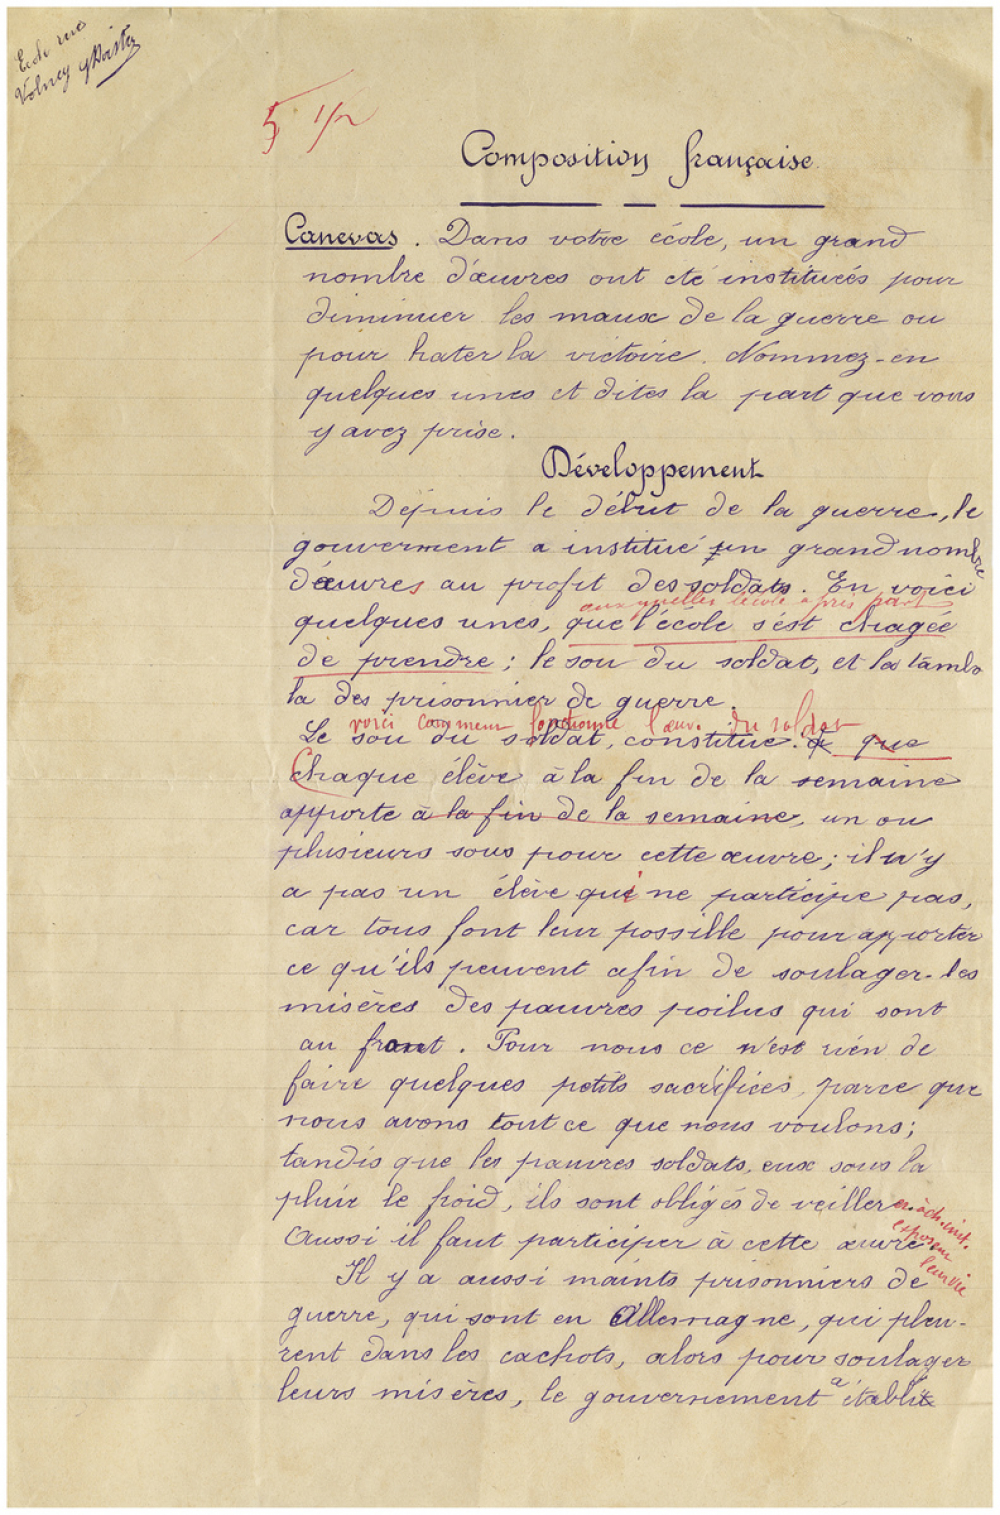 Ecole rue
Volney
5 1/2
Composition française
Canevas. Dans votre école, un grand
nombre d'œuvres ont été instituées pour
diminuer les maux de la guerre ou
pour hater la victoire. Nommez-en
quelques unes et dites la part que vous
y avez prise.
Développement
Depuis le début de la guerre, le
gouverment a institué un grand nombre
d'œuvres au profit des soldats. En voici
auxquelles l'école a pris part
quelques unes, que l'école s'est chagée
de prendre; le sou du soldat, et la tambo
la des prisonnier de guerre.
voici comment fonctionne l'œuv. du soldat
Le sou du soldat, constitue. à que
Chaque élève à la fin de la semaine
apporte à la fin de la semaine, un ou
plusieurs sous pour cette œuvre; il n'y
a pas un élève qui ne participe pas,
car tous font leur possible pour apporter
ce qu'ils peuvent afin de soulager les
misères des pauvres poilus qui sont
au front. Pour nous ce n'est rien de
faire quelques petits sacrifices, parce que
nous avons tout ce que nous voulons;
tandis que les pauvres soldats, eux sous la
pluie le froid, ils sont obligés de veiller
exposent
leur vie
Aussi il faut participer à cette œuvre
Il y a aussi maints prisonniers de
guerre, qui sont en Allemagne, qui pleu-
rent dans les cachots, alors pour soulager
leurs misères, le gouvernement a établit